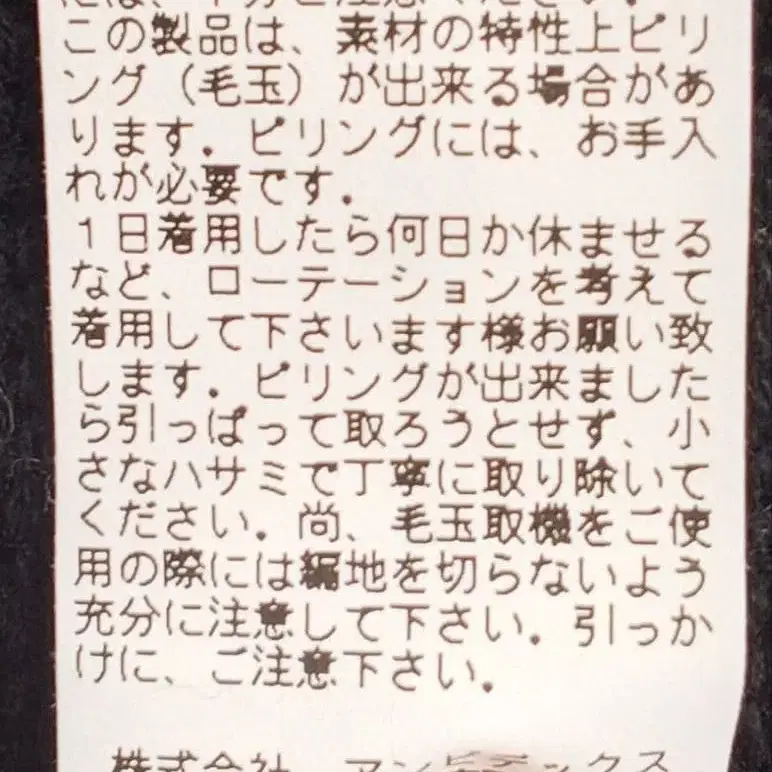 には、十分ご注意ください.
この製品は、素材の特性上ピリ
ング（毛玉）が出来る場合があ
ります. ピリングには、お手入
れが必要です.
１日着用したら何日か休ませる
など、ローテーションを考えて
着用して下さいます様お願い致
します. ピリングが出来ました
ら引っぱって取ろうとせず、小
さなハサミで丁寧に取り除いて
ください. 尚、毛玉取機をご使
用の際には編地を切らないよう
充分に注意して下さい. 引っか
けに、ご注意下さい.
株式会社